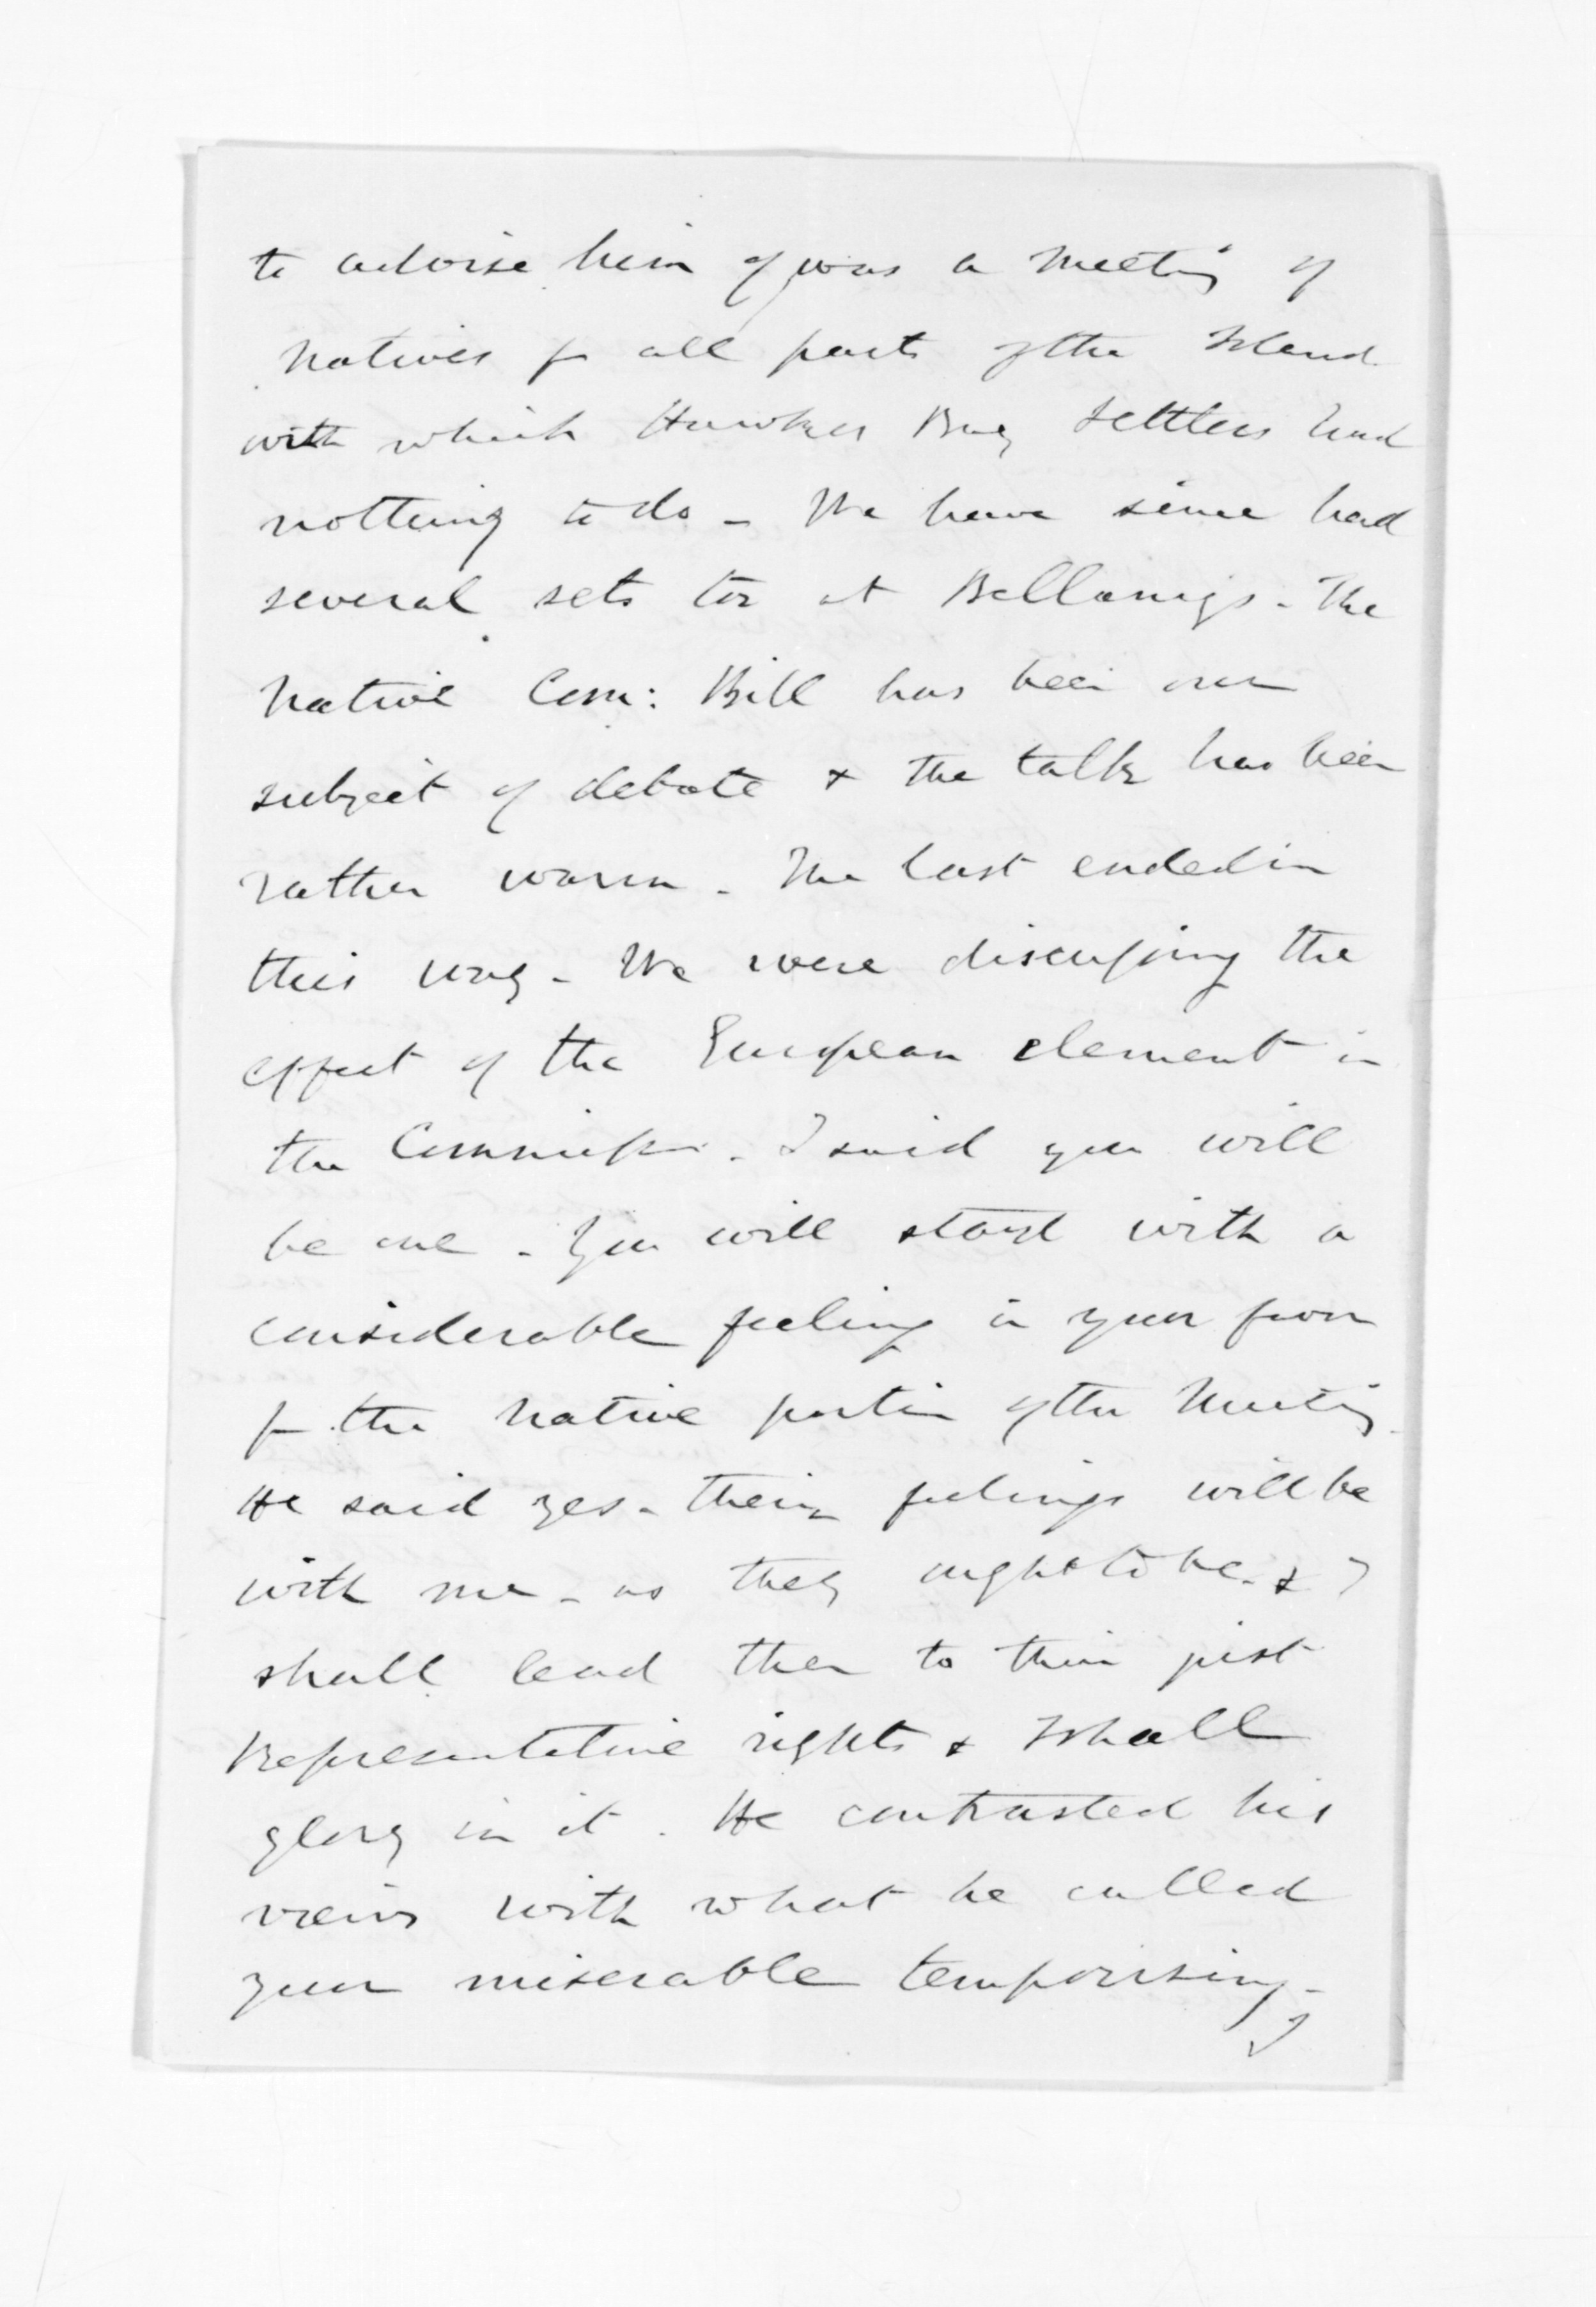 to advise him of was a meeting of
Natives fr all parts of the Island
with which Hawkes Bay Settlers had
nothing to do - We have since had
several sets too at Bellamys. The
Native Com: Bill has been our
subject of debate & the talk has been
rather warm - The last ended in
this way - We were discussing the
effect of the European element in
the Commissn. I said you will
be one - You will start with a
considerable feeling in your favor
fr the Native portion of the Meeting.
He said yes - their feelings will be
with me - as they ought to be - & I
shall lead them to their just
Representative rights & I shall
glory in it. He contrasted his
views with what he called
your miserable temporising -
I